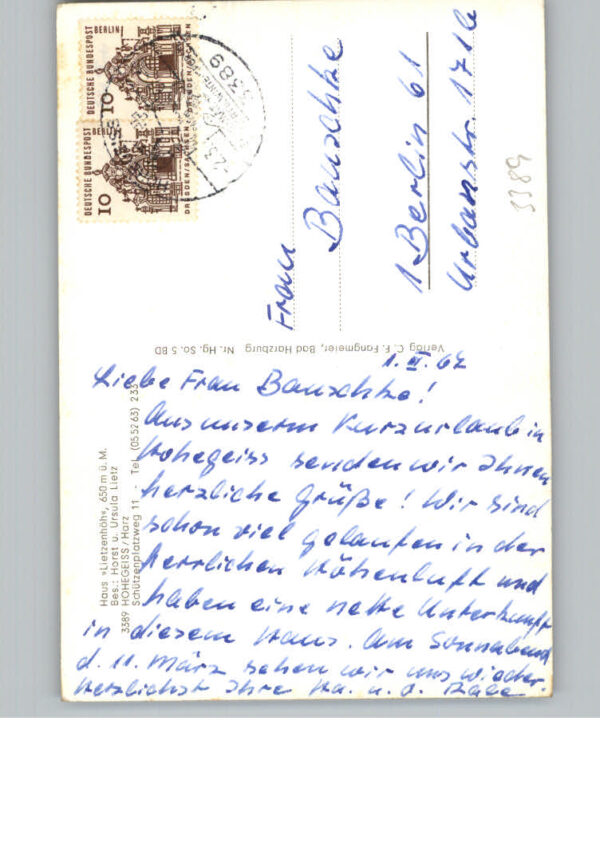 DEUTSCHE BUNDESPOST
BERLIN
10
DRESDEN/SACHSEN
DEUTSCHE BUNDESPOST
BERLIN
10
DRESDEN/SACHSEN
3389
-2.3.
Frau
Bauschke
1 Berlin 61
Urbanstr. 171b
3389
Verlag C. F. Fangmeier, Bad Harzburg Nr. Hg. So. 5 BD
Haus »Lietzenhöh«, 650 m ü. M.
Bes.: Horst u. Ursula Lietz
3389 HOHEGEISS/Harz
Schützenplatzweg 11 - Tel. (05 52 63) 233
1. III. 67
Liebe Frau Bauschke!
Aus unserm Kurzurlaub in
Hohegeiss senden wir Ihnen
herzliche Grüße! Wir sind
schon viel gelaufen in der
herrlichen Höhenluft und
haben eine nette Unterkunft
in diesem Haus. Am Sonnabend
d. 11. März sehen wir uns wieder.
Herzlichst Ihre